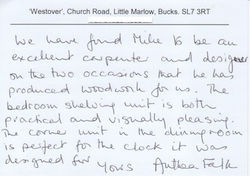 'Westover', Church Road, Little Marlow, Bucks. SL7 3RT
We have found Mike to be an
excellent carpenter and designer
on the two occasions that he has
produced woodwork for us. The
bedroom shelving unit is both
practical and visually pleasing.
The corner unit in the dining room
is perfect for the clock it was
designed for
Yours Anthea Falk